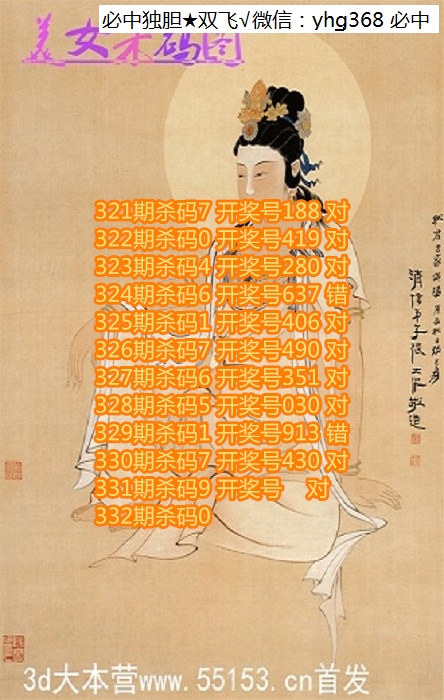 必中独胆★双飞√微信：yhg368 必中
美女杀码图
321期杀码7 开奖号188 对
322期杀码0 开奖号419 对
323期杀码4 开奖号280 对
324期杀码6 开奖号637 错
325期杀码1 开奖号406 对
326期杀码7 开奖号490 对
327期杀码6 开奖号351 对
328期杀码5 开奖号030 对
329期杀码1 开奖号913 错
330期杀码7 开奖号430 对
331期杀码9 开奖号 对
332期杀码0
3d大本营www.55153.cn首发